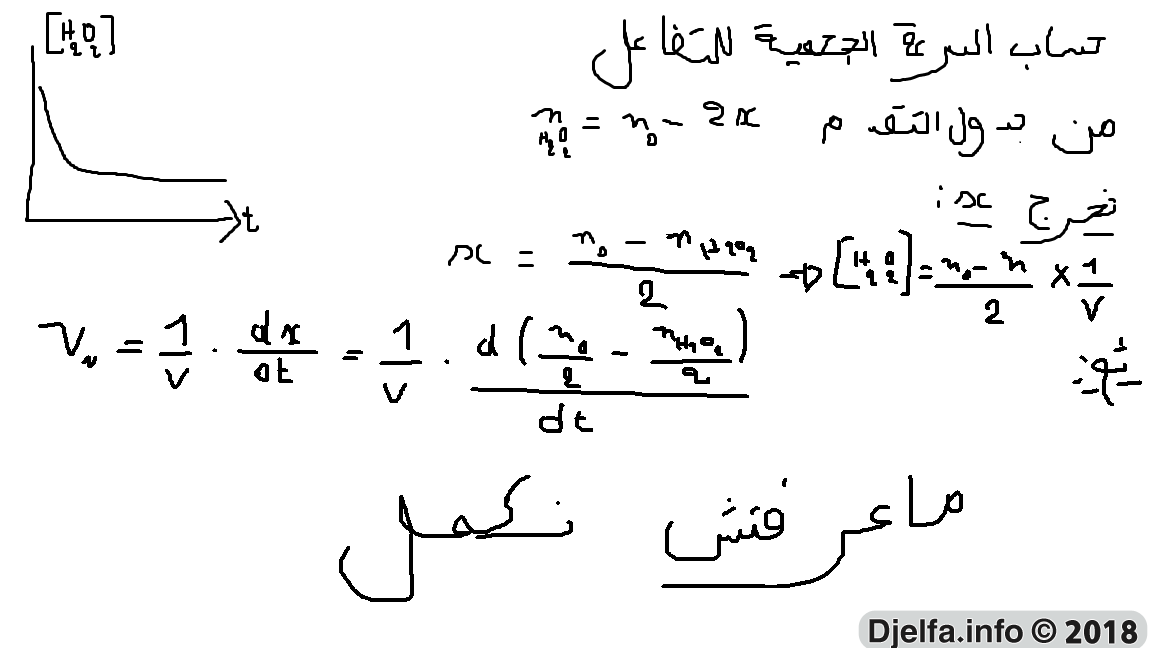 [H2O2]
حساب السرعة الحجمية للتفاعل
من جدول التقدم n H2O2 = n0 - 2x
t
نخرج x :
x = (n0 - nH2O2)/2 → [H2O2] = (n0 - n)/2 × 1/V
Vv = 1/V . dx/dt = 1/V . d(n0/2 - nH2O2/2)/dt
ماعرفتش نكمل
Djelfa.info © 2018